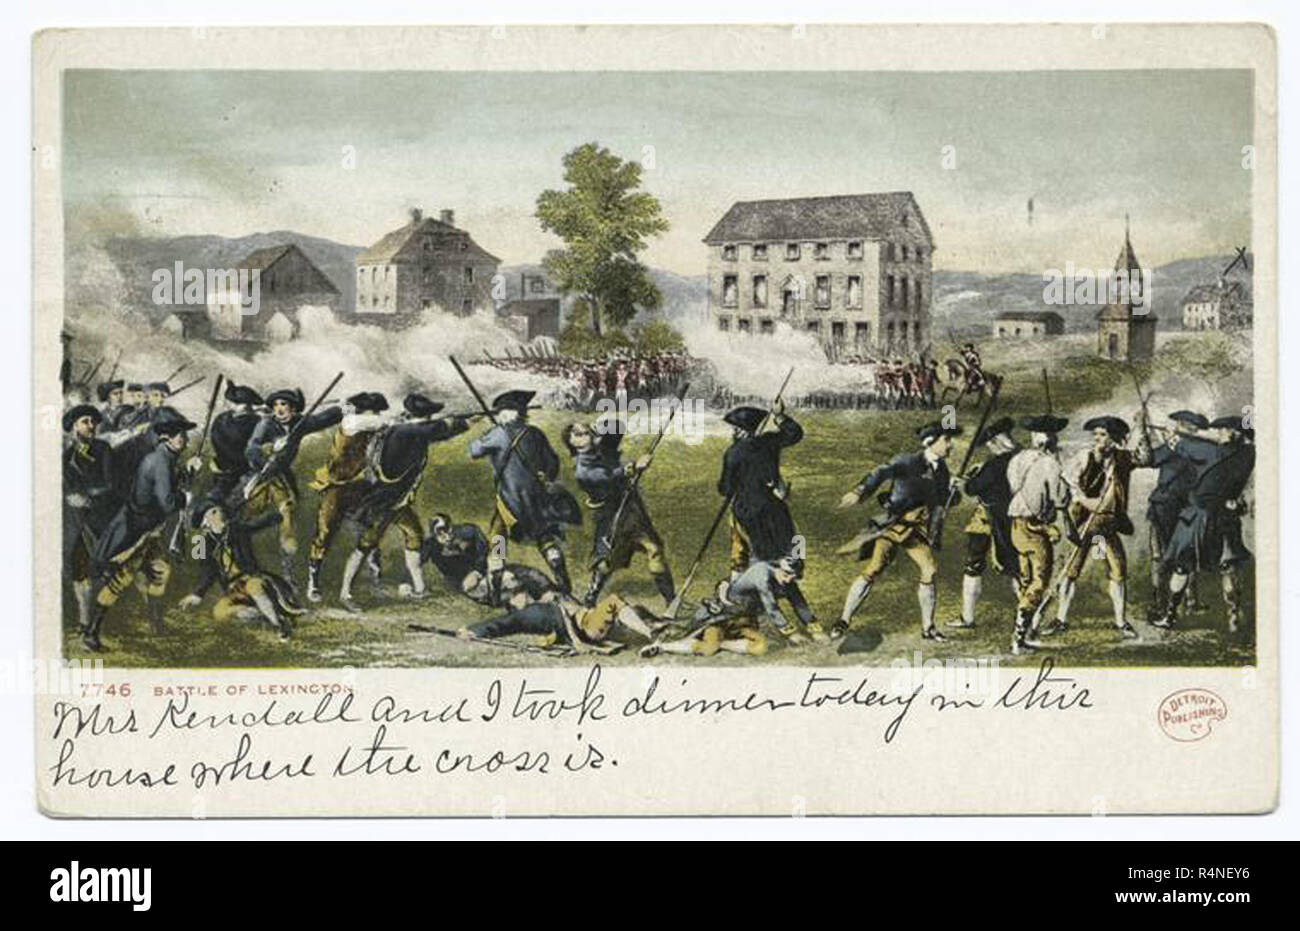 7746 BATTLE OF LEXINGTON
Mrs Kendall and I took dinner today in this
house where the cross is.
A DETROIT
PUBLISHING
Co
X
alamy
Image ID: R4NEY6
www.alamy.com